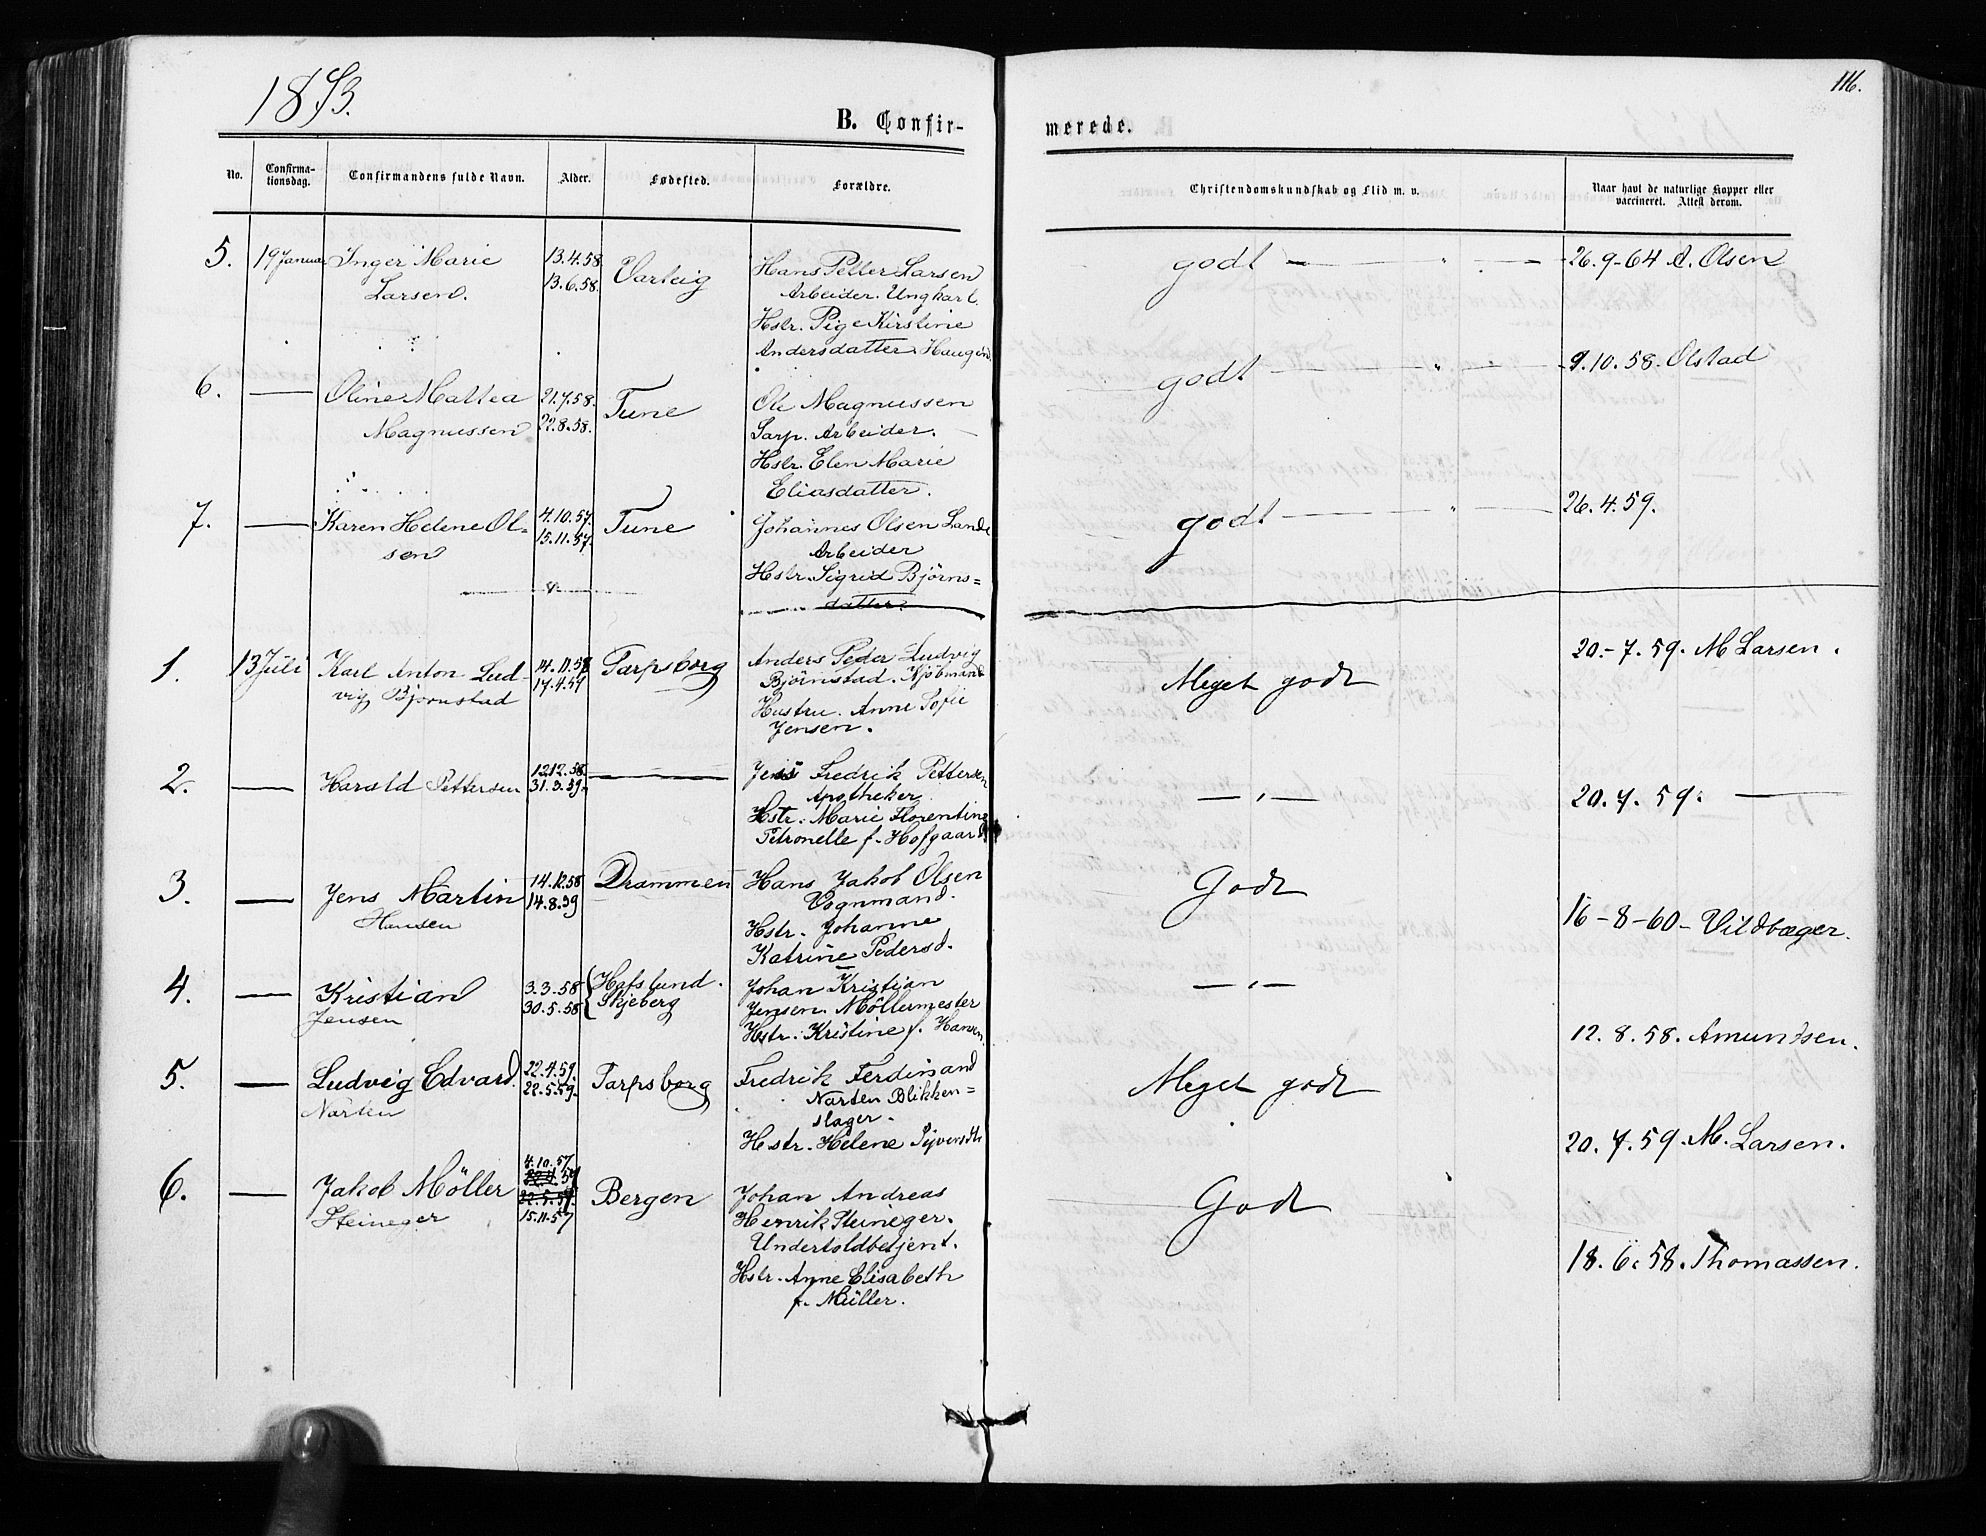 1873.
116.
B. Confirmerede.
No.
Confirmationsdag.
Confirmandens fulde Navn.
Alder.
Fødested.
Forældre.
Christendomskundskab og Flid m. v.
Naar havt de naturlige Kopper eller
vaccineret. Attest derom.
5. 19 Januar Inger Marie 13.4.58 Varteig Hans Petter Larsen godt — " — 26.9-64 A. Olsen
Larsen. 13.6.58. Arbeider. Ungkarl.
Hstr. Pige Kirstine
Andersdatter
6. — Oline Mattea 21.7.58. Tune Ole Magnussen godt — " — 9.10.58. Olstad
Magnussen 22.8.58. Sarp. Arbeider.
Hstr. Elen Marie
Eliasdatter.
7. — Karen Helene Ol- 4.10.57. Tune Johannes Olsen Lande godt — " — 26.4.59.
sen 15.11.57. Arbeider
Hstr. Sigrid Björns=
datter.
1. 13 Juli Karl Anton Lud- 14.11.58 Sarpsborg Anders Peder Ludvig Meget godt 20.-7.59. M Larsen.
vig Bjørnstad 17.4.59 Björnstad. Kjöbmand
Hustru. Anne Sofie
Jensen.
2. — Harald Pettersen 12.12.58. — Jens Fredrik Pettersen — " — 20.7.59. —
31.3.59. Apotheker.
Hstr. Marie Florentine
Petronelle f. Hofgaard
3. — Jens Martin 14.12.58 Drammen Hans Jakob Olsen Godt 16-8-60- Vildbæger.
Hansen 14.8.59 Vognmand.
Hstr. Johanne
Katrine Pedersd.
4. — Kristian 3.3.58 Hafslund. Johan Kristian — " — 12.8.58. Amundsen.
Jensen 30.5.58 Skjeberg Jensen. Möllermester
Hstr. Kristine f. Hansen.
5. — Ludvig Edvard 22.4.59. Sarpsborg Fredrik Ferdinand Meget godt 20.7.59. M. Larsen.
Narten 22.5.59. Narten Blikken=
slager.
Hstr. Helene Syversdtr
6. — Jakob Möller 4.10.57 Bergen Johan Andreas Godt 18.6.58. Thomassen.
Steineger 22.4.59 Henrik Steineger.
22.5.59. Undertoldbetjent.
15.11.57 Hstr. Anne Elisabeth
f. Müller.